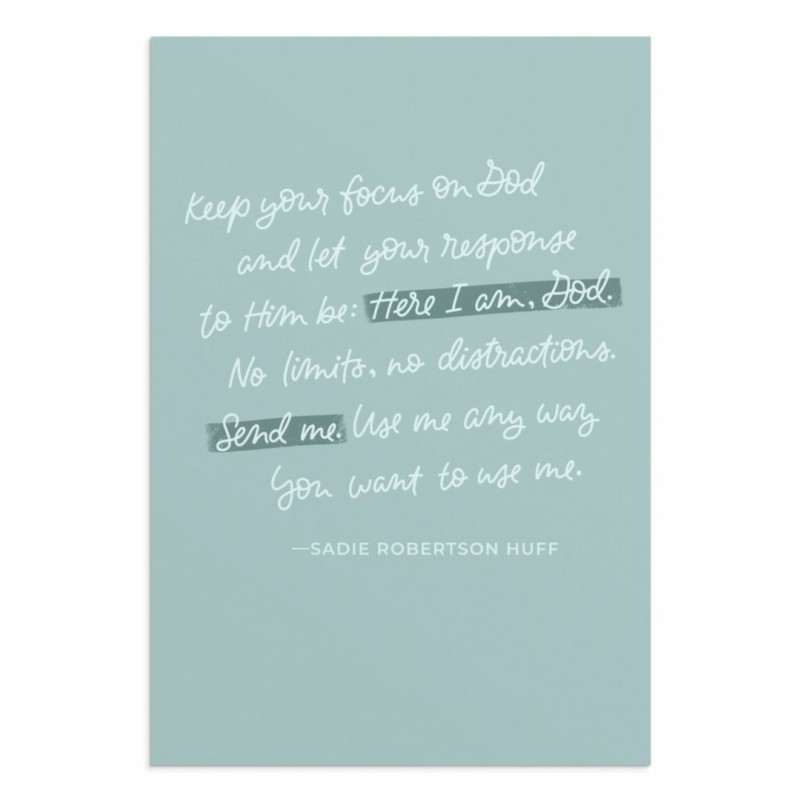 Keep your focus on God
and let your response
to Him be: Here I am, God.
No limits, no distractions.
Send me. Use me any way
You want to use me.
—SADIE ROBERTSON HUFF